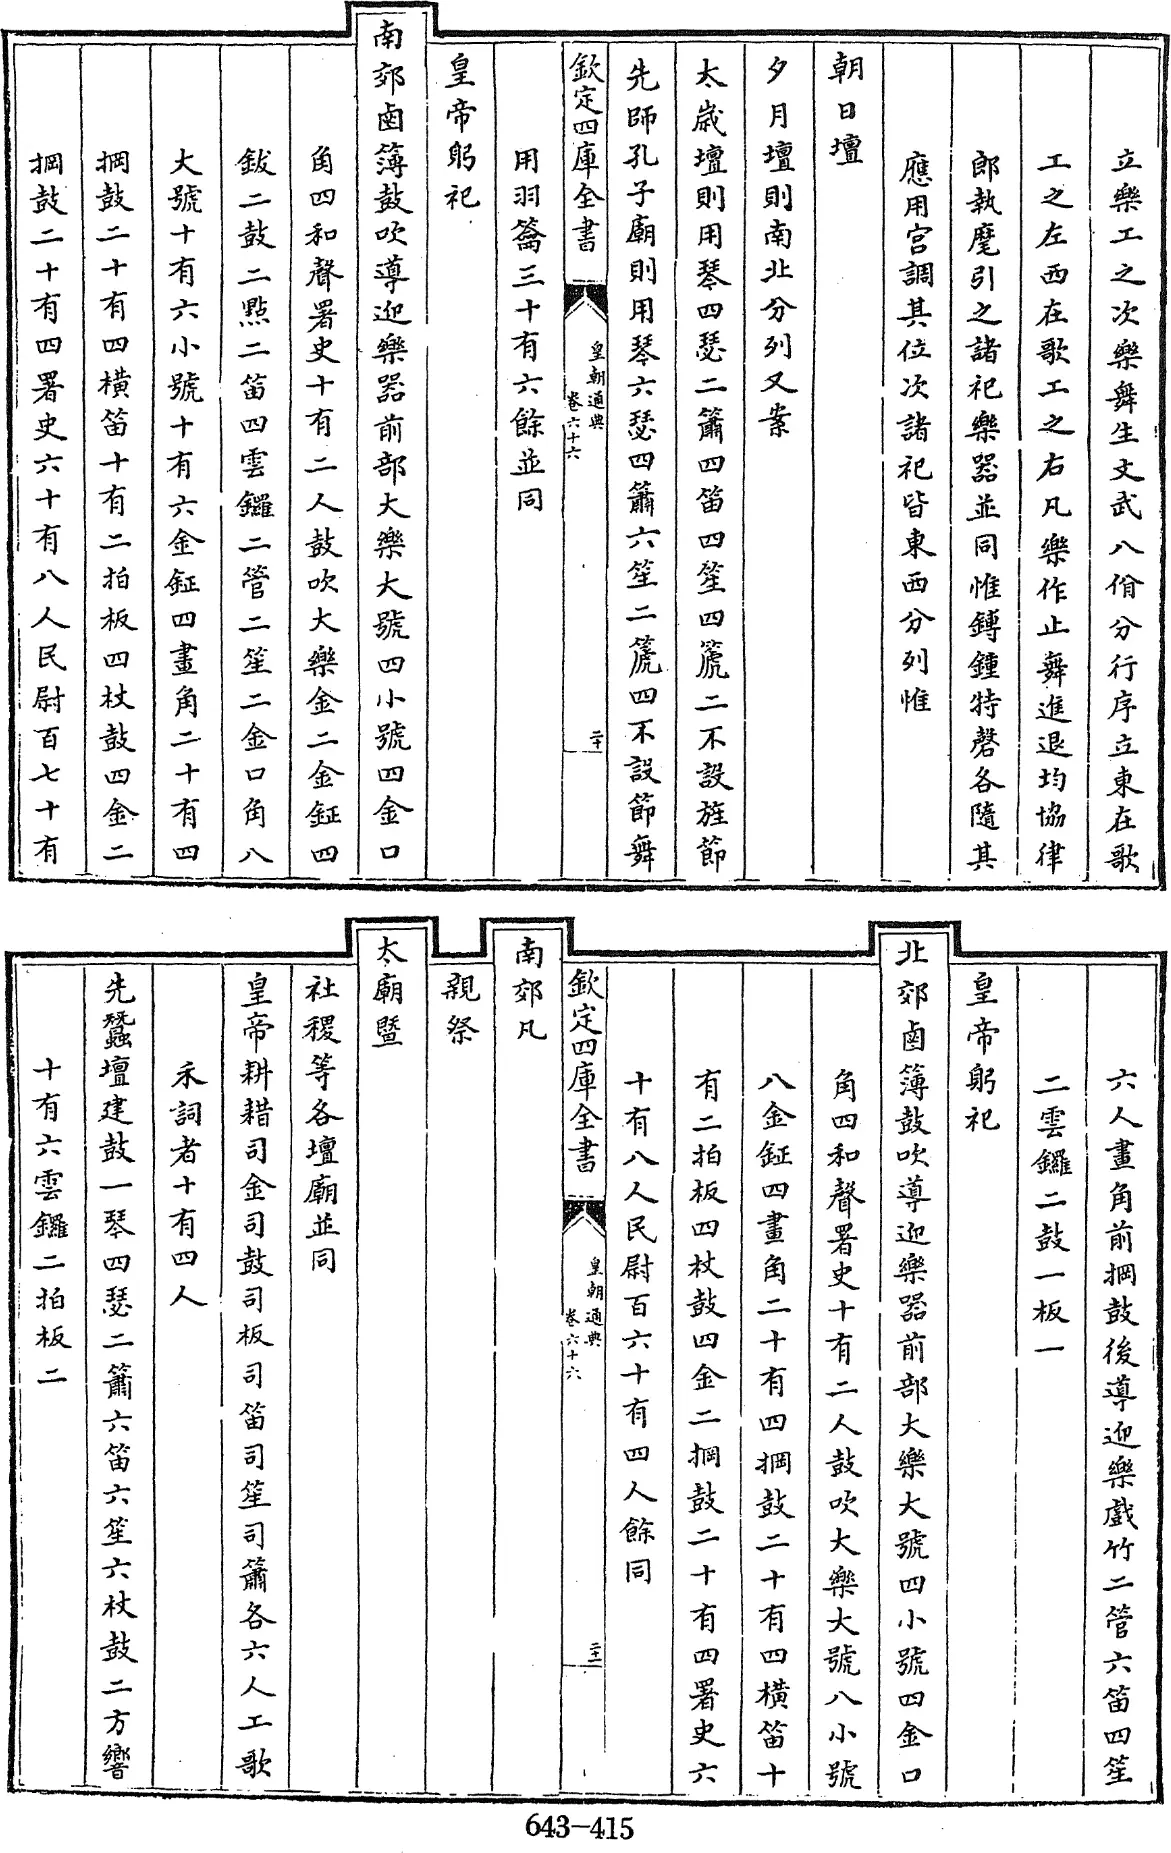 立樂工之次樂舞生文武八佾分行序立東在歌
工之左西在歌工之右凡樂作止舞進退均協律
郎執麾引之諸祀樂器並同惟鎛鍾特磬各隨其
應用宮調其位次諸祀皆東西分列惟
朝日壇
夕月壇則南北分列又案
太歲壇則用琴四瑟二簫四笛四笙四箎二不設旌節
先師孔子廟則用琴六瑟四簫六笙二箎四不設節舞
欽定四庫全書
皇朝通典
卷六十六
二十
用羽籥三十有六餘並同
皇帝躬祀
南郊鹵簿鼓吹導迎樂器前部大樂大號四小號四金口
角四和聲署史十有二人鼓吹大樂金二金鉦四
鈸二鼓二點二笛四雲鑼二管二笙二金口角八
大號十有六小號十有六金鉦四畫角二十有四
㧏鼓二十有四橫笛十有二拍板四杖鼓四金二
㧏鼓二十有四署史六十有八人民尉百七十有
六人畫角前㧏鼓後導迎樂戲竹二管六笛四笙
二雲鑼二鼓一板一
皇帝躬祀
北郊鹵簿鼓吹導迎樂器前部大樂大號四小號四金口
角四和聲署史十有二人鼓吹大樂大號八小號
八金鉦四畫角二十有四㧏鼓二十有四橫笛十
有二拍板四杖鼓四金二㧏鼓二十有四署史六
十有八人民尉百六十有四人餘同
欽定四庫全書
皇朝通典
卷六十六
二十一
南郊凡
親祭
太廟暨
社稷等各壇廟並同
皇帝耕耤司金司鼓司板司笛司笙司簫各六人工歌
禾詞者十有四人
先蠶壇建鼓一琴四瑟二簫六笛六笙六杖鼓二方響
十有六雲鑼二拍板二
643-415